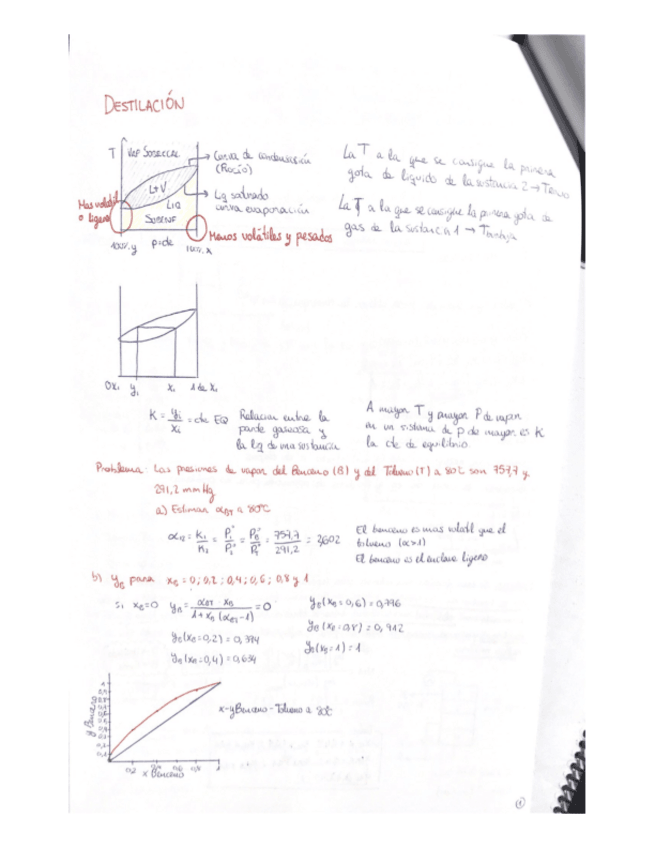 DESTILACIÓN
T
VAP SOBRECAL
Curva de condensación
(Rocío)
L+V
Lq saturado
curva evaporación
LIQ
SUBENF
Mas volátil
o ligero
Menos volátiles y pesados
100% y
p=cte
100% x
La T a la que se consigue la primera
gota de líquido de la sustancia 2 →
La T a la que se consigue la primera gota de
gas de la sustancia 1 → T burbuja
0x₁ y₁ x₁ 1 de x₁
K = yi/xi = cte EQ
Relacion entre la
parte gaseosa y
la lq de una sustancia
A mayor T y mayor P de vapor
en un sistema de P cte mayor es K
la cte de equilibrio.
Problema: Las presiones de vapor del Benceno (B) y del Tolueno (T) a 80℃ son 757,7 y
291,2 mmHg
a) Estimar αBT a 80℃
α12 = K₁/K₂ = P₁°/P₂° = PB°/PT° = 757,7/291,2 = 2,602
El benceno es mas volatil que el
tolueno (α>1)
El benceno es el ligero
b) yB para xB = 0; 0,2; 0,4; 0,6; 0,8 y 1
Si xB=0 yB = αBT · xB / 1+xB (αBT-1) = 0
yB(xB=0,2) = 0,394
yB(xB=0,4) = 0,634
yB(xB=0,6) = 0,796
yB(xB=0,8) = 0,912
yB(xB=1) = 1
y Benceno
x-y Benceno-Tolueno a 80℃
0,2 0,4 0,6 0,8 1
x Benceno
1